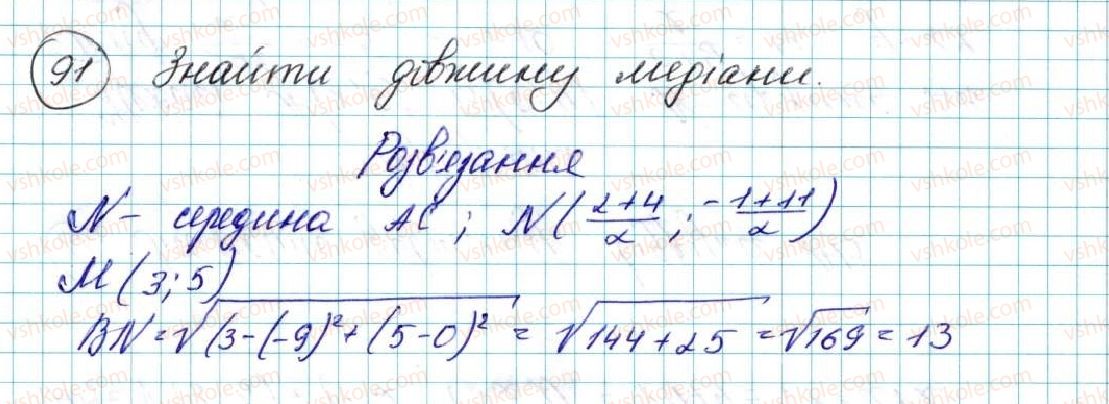 91 Знайти довжину медіани.
Розв'язання
N - середина AC; N(2+4/2; -1+11/2)
M(3;5)
BN = √(3-(-9)²+(5-0)² = √144+25 = √169 = 13